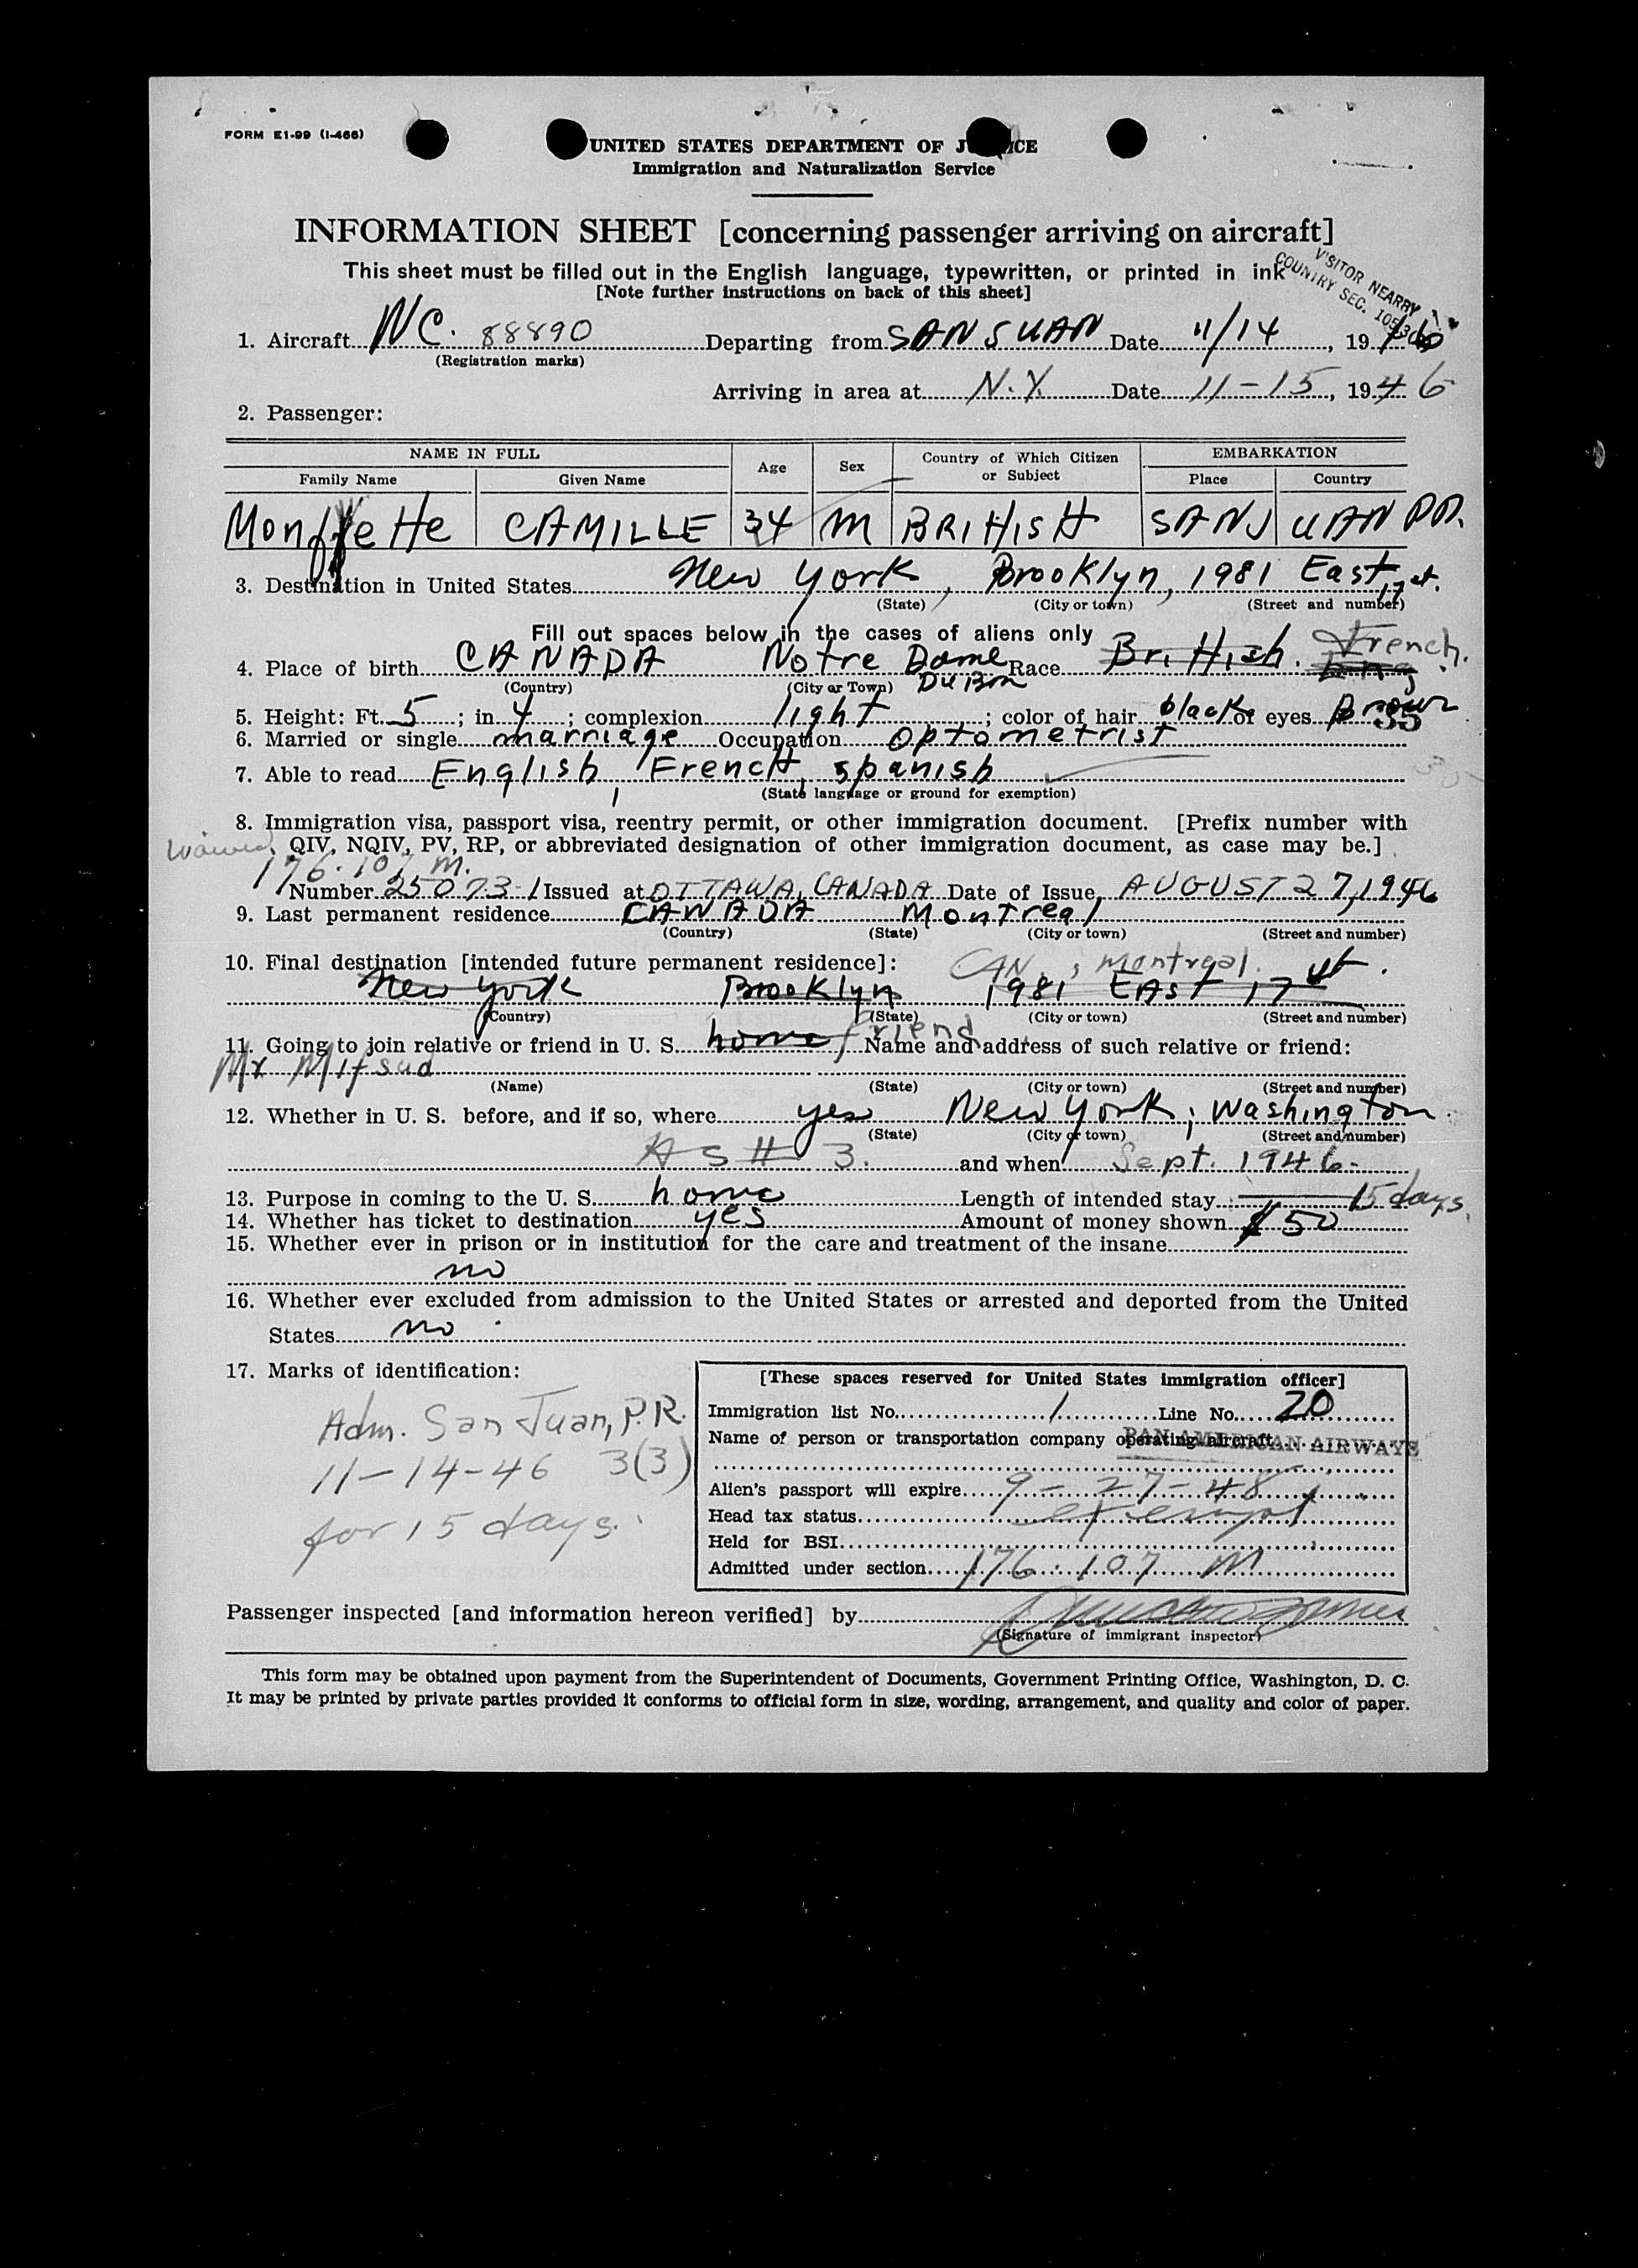 FORM E1-99 (I-466)
UNITED STATES DEPARTMENT OF J ICE
Immigration and Naturalization Service
INFORMATION SHEET [concerning passenger arriving on aircraft]
This sheet must be filled out in the English language, typewritten, or printed in ink
[Note further instructions on back of this sheet]
VISITOR NEARBY
COUNTRY SEC.
1. Aircraft NC. 88890 Departing from SAN JUAN Date 11/14, 19
(Registration marks)
Arriving in area at N.Y. Date 11-15, 1946
2. Passenger:
NAME IN FULL Age Sex Country of Which Citizen or Subject EMBARKATION
Family Name Given Name Place Country
CAMILLE 34 M BRITTISH SAN JUAN P.R.
3. Destination in United States New York, Brooklyn, 1981 East 17 st.
(State) (City or town) (Street and number)
Fill out spaces below in the cases of aliens only
4. Place of birth CANADA Notre Dame Du Bon Race Brittish. French.
(Country) (City or Town)
5. Height: Ft. 5; in. 4; complexion light; color of hair black of eyes Brown
6. Married or single marriage Occupation optometrist
7. Able to read English, French, spanish
(State language or ground for exemption)
8. Immigration visa, passport visa, reentry permit, or other immigration document. [Prefix number with
Waived QIV, NQIV, PV, RP, or abbreviated designation of other immigration document, as case may be.]
176.107 M.
Number 25073-1 Issued at OTTAWA, CANADA Date of Issue AUGUST 27, 1946
9. Last permanent residence CANADA Montreal
(Country) (State) (City or town) (Street and number)
10. Final destination [intended future permanent residence]: CAN., Montreal.
New York Brooklyn 1981 EAST 17 st.
(Country) (State) (City or town) (Street and number)
11. Going to join relative or friend in U. S. home friend Name and address of such relative or friend:
Mr Mifsud
(Name) (State) (City or town) (Street and number)
12. Whether in U. S. before, and if so, where yes New York, Washington
(State) (City or town) (Street and number)
3. and when Sept. 1946-
13. Purpose in coming to the U. S. home Length of intended stay 15 days.
14. Whether has ticket to destination yes Amount of money shown $50
15. Whether ever in prison or in institution for the care and treatment of the insane
no
16. Whether ever excluded from admission to the United States or arrested and deported from the United
States no.
17. Marks of identification:
Adm. San Juan, P.R.
11-14-46 3(3)
for 15 days.
[These spaces reserved for United States immigration officer]
Immigration list No. 1 Line No. 20
Name of person or transportation company operating aircraft PAN AMERICAN AIRWAYS
Alien's passport will expire 9-27-48
Head tax status exempt
Held for BSI
Admitted under section 176.107 M
Passenger inspected [and information hereon verified] by
(Signature of immigrant inspector)
This form may be obtained upon payment from the Superintendent of Documents, Government Printing Office, Washington, D. C.
It may be printed by private parties provided it conforms to official form in size, wording, arrangement, and quality and color of paper.